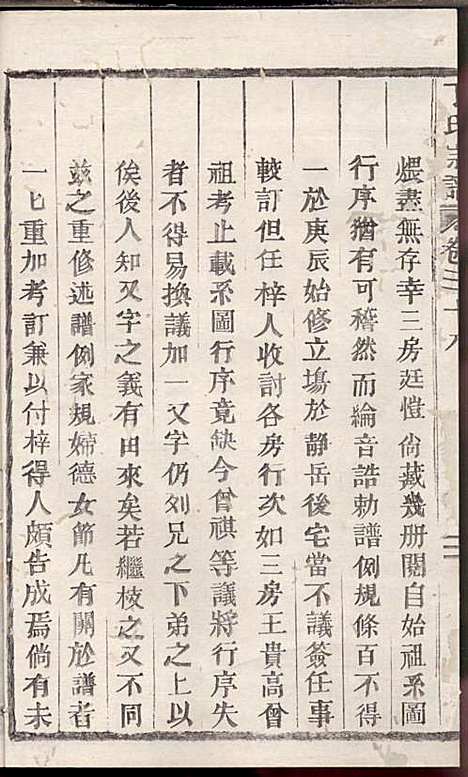 丁氏宗譜 卷二十八
煨盡無存幸三房廷愷尙藏幾册關自始祖系圖
行序猶有可稽然而綸音誥勅譜例規條百不得
一於庚辰始修立塲於靜岳後宅當不議簽任事
較訂但任梓人收討各房行次如三房王貴高曾
祖考止載系圖行序竟缺今曾祺等議將行序失
者不得易換議加一又字仍列兄之下弟之上以
俟後人知又字之義有由來矣若繼枝之又不同
兹之重修述譜例家規婦德女節凡有關於譜者
一匕重加考訂兼以付梓得人頗告成焉倘有未